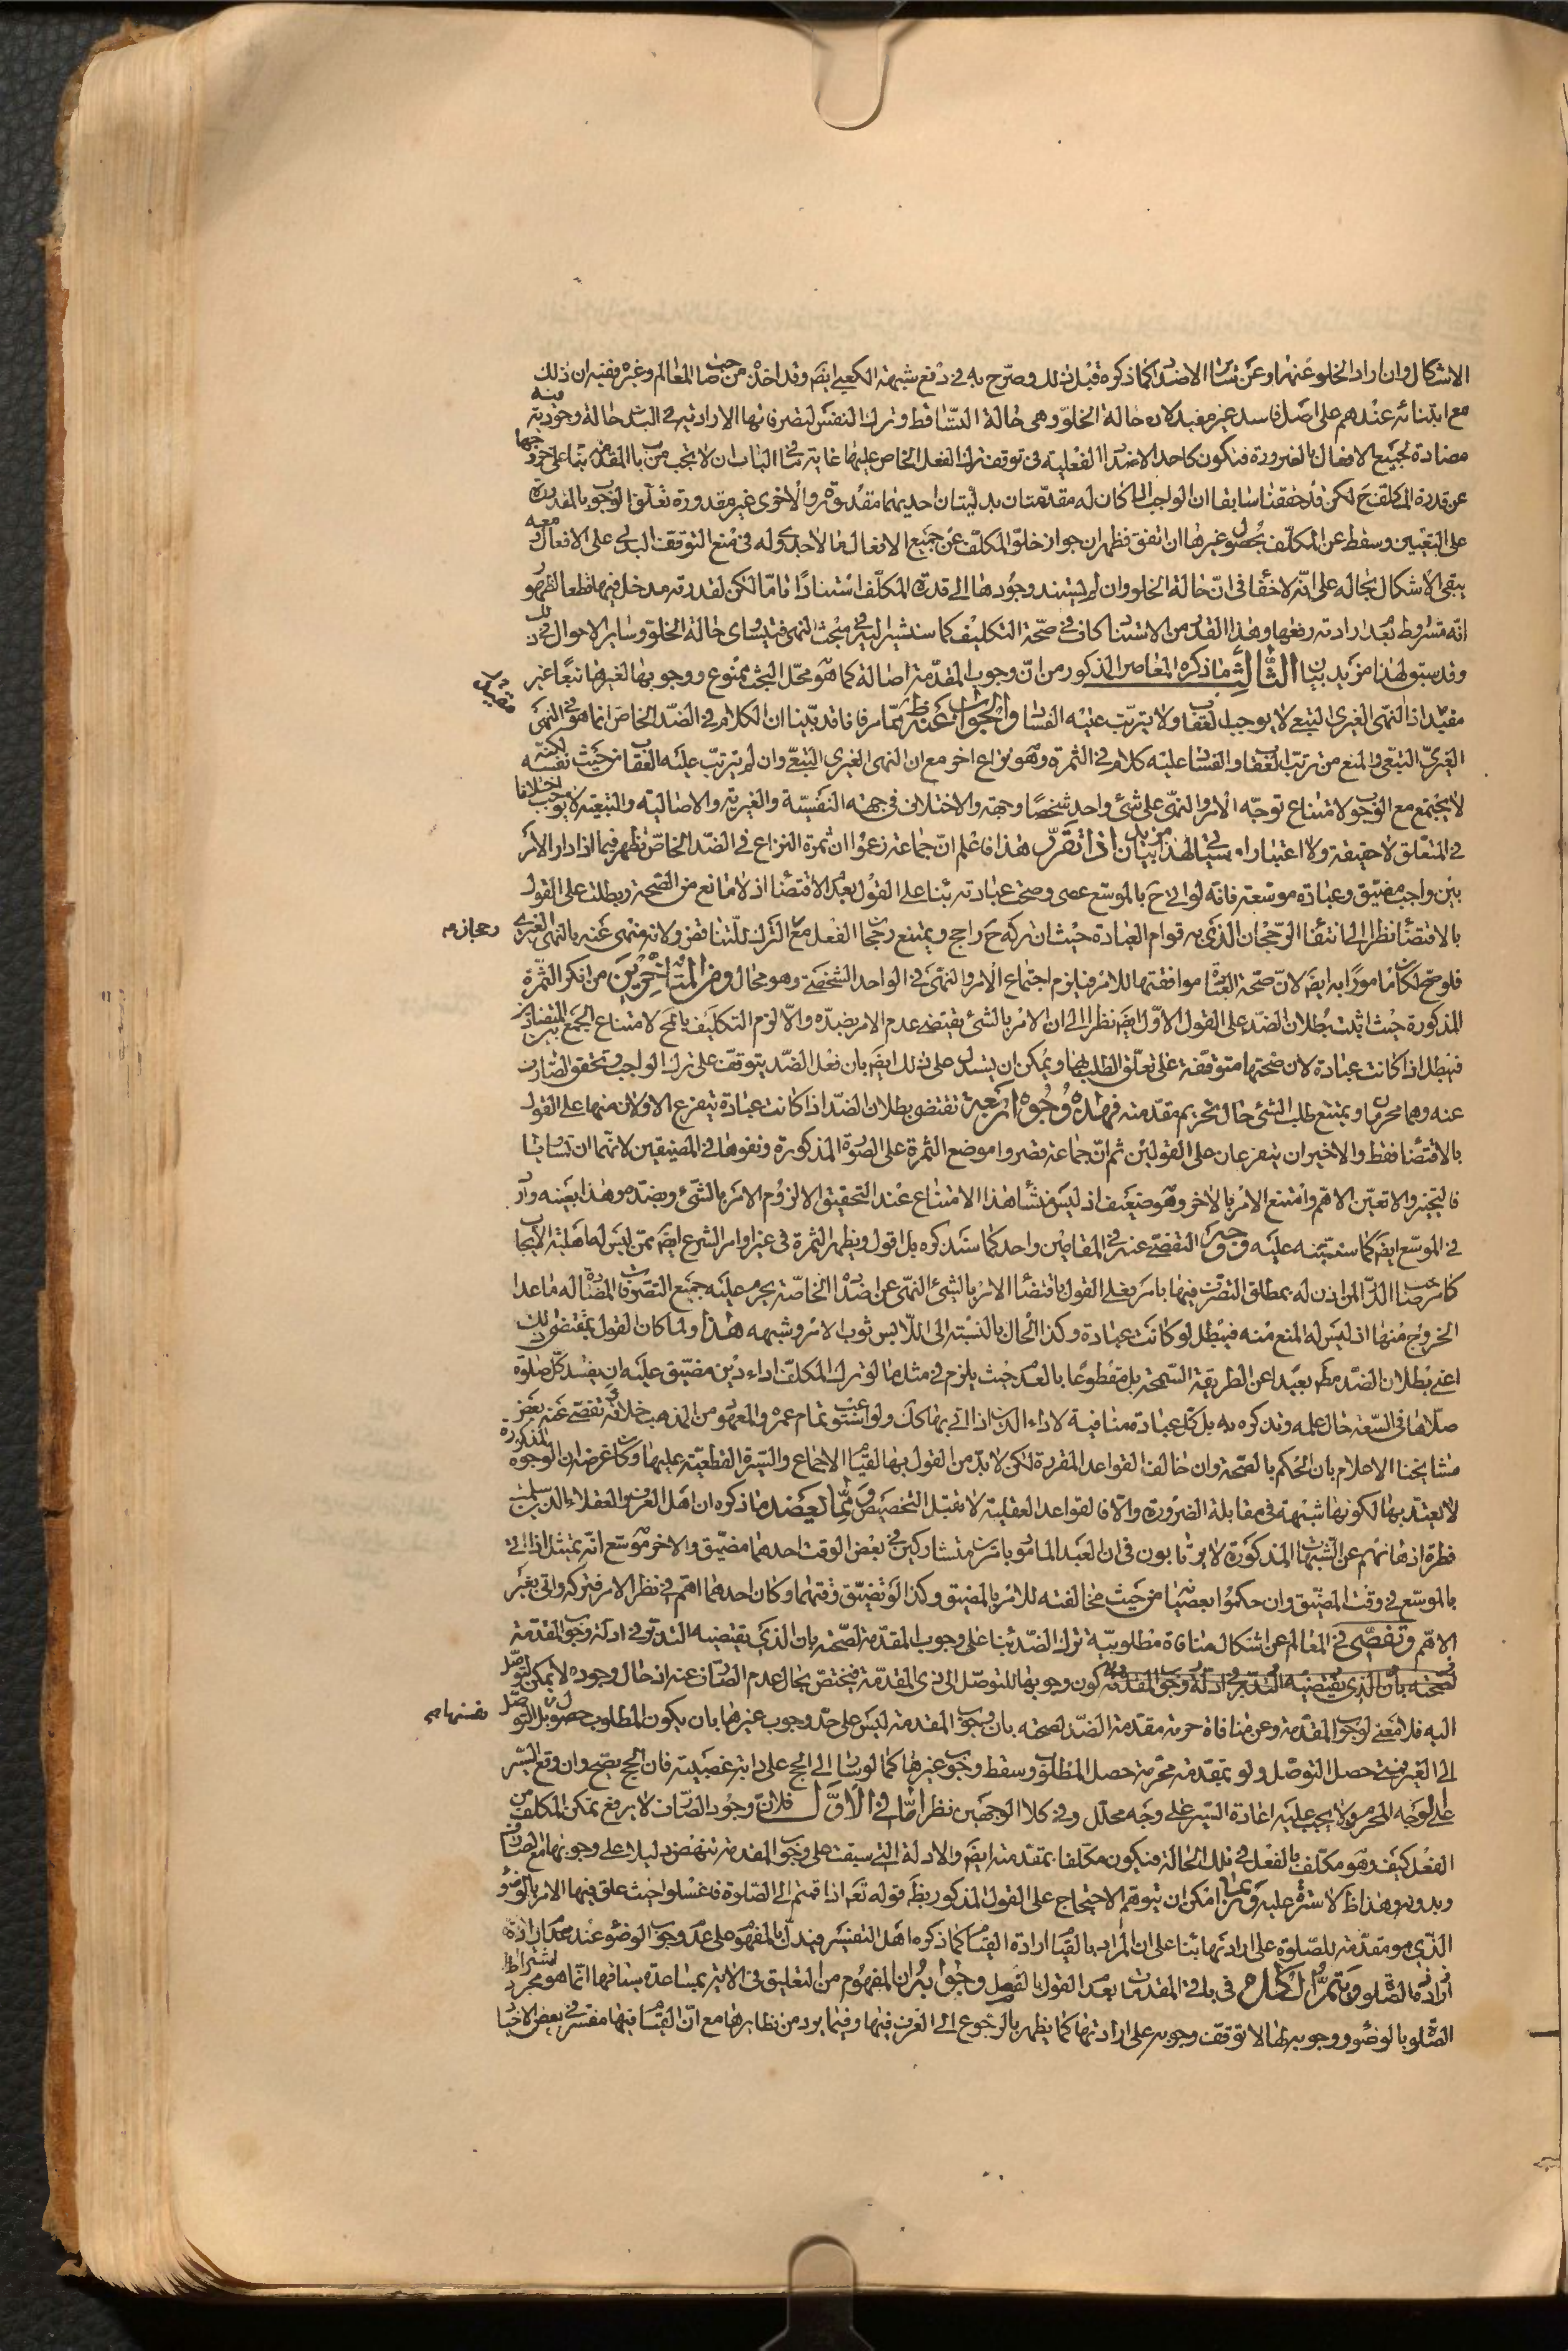 الاشكال وان اراد الخلو عنها وعن سائر الاضداد كما ذكره قبل ذلك وصرح به فى دفع شبهة الكعبى ايضا وقد اخذه من صاحب المعالم وغيره ففيه ان ذلك
مع ابتنائه عندهم على اصل فاسد غير مفيد لان حالة الخلو وهى حالة التساقط وترك النفس لتصرفاتها الارادية فى البدن حالة وجودية
مضادة لجميع الافعال بالضرورة فتكون كاحد الاضداد الفعلية فى توقف ترك الفعل الخاص عليها غايته ما فى الباب ان لا يجب من باب المقدمة بناء على خروجها
عن قدرة المكلف ح لكن قد حققنا سابقا ان الواجب اذا كان له مقدمتان بدليتان احديهما مقدورة والاخرى غير مقدورة تعلق الوجوب بالمقدورة
على التعيين وسقط عن المكلف بحصول غيرها ان اتفق فظهر ان جواز خلو المكلف عن جميع الافعال مما لا جدوى له فى منع التوقف البدلى على الافعال ومعه
يبقى الاشكال بحاله على انه لا خفاء فى ان حالة الخلو وان لم يستند وجودها الى قدرة المكلف استنادا تاما لكن لقدرته مدخل فيها قطعا لظهور
انه مشروط بعدم ارادته رفعها وهذا القدر من الاستناد كاف فى صحة التكليف كما سنشير اليه فى مبحث النهى فيتساوى حالة الخلو وساير الاحوال فى ذلك
وقد سبق لهذا مزيد بيان الثالث ما ذكره المعاصر المذكور من ان وجوب المقدمة اصالة كما هو محل البحث ممنوع ووجوبها لغيرها تبعا غير
مفيد اذ النهى الغيرى التبعى لا يوجب العقاب ولا يترتب عليه الفساد والجواب عنه ظ مما مر فانا قد بينا ان الكلام فى الضد الخاص انما هو فى النهى
الغيرى التبعى والمنع من ترتب العقاب والفساد عليه كلام فى الثمرة وهو نزاع اخر مع ان النهى الغيرى التبعى وان لم يترتب عليه العقاب من حيث نفسه لكنه
لا يجتمع مع الوجوب لامتناع توجه الامر والنهى على شئ واحد شخصا وجهة والاختلاف فى جهة النفسية والغيرية والاصالية والتبعية لا يوجب اختلافا
فى المتعلق لا حقيقة ولا اعتبارا وسياتى لهذا مزيد بيان اذا تقرر هذا فاعلم ان جماعة زعموا ان ثمرة النزاع فى الضد الخاص تظهر فيما اذا دار الامر
بين واجب مضيق وعبادة موسعة فانه لو اتى ح بالموسع عصى وصحت عبادته بناء على القول بعدم الاقتضاء اذ لا مانع من الصحة وبطلت على القول
بالاقتضاء نظرا الى انتفاء الرجحان الذى به قوام العبادة حيث ان تركه ح راجح ويمتنع رجحان الفعل مع الترك للتناقض ولانه منهى عنه بالنهى الغيرى
فلو صح لكان مامورا به ايضا لان صحة العبادة موافقتها للامر فيلزم اجتماع الامر والنهى فى الواحد الشخصى وهو محال ومن المتاخرين من انكر الثمرة
المذكورة حيث اثبت بطلان الضد على القول الاول ايضا نظرا الى ان الامر بالشئ يقتضى عدم الامر بضده والا لزم التكليف بالمح لامتناع الجمع بين المتضادين
فيبطل اذا كانت عبادة لان صحتها متوقفة على تعلق الطلب بها ويمكن ان يستدل على ذلك ايضا بان فعل الضد يتوقف على ترك الواجب وتحقق الصارف
عنه وهما محرمان ويمتنع طلب الشئ حال تحريم مقدمته فهذه وجوه اربعة تقتضى بطلان الضد اذا كانت عبادة يتفرع الاولان منها على القول
بالاقتضاء فقط والاخيران يتفرعان على القولين ثم ان جماعة قصروا موضع الثمرة على الصورة المذكورة ونفوها فى المضيقين لانهما ان تساويا
فالتخيير والا تعين الاهم وامتنع الامر بالاخر وهو ضعيف اذ ليس منشا هذا الامتناع عند التحقيق الا لزوم الامر بالشئ وبضده وهذا بعينه وارد
فى الموسع ايضا كما سننبه عليه ووجه التفصى عنه فى المقامين واحد كما سنذكره بل اقول ويظهر الثمرة فى غير اوامر الشرع ايضا ممن ليس له اهلية الايجاب
كامر صاحب الدار لمن اذن له بمطلق التصرف فيها بامر فعلى القول باقتضاء الامر بالشئ النهى عن اضداده الخاصة يحرم عليه جميع التصرفات المضادة له ما عدا
الخروج منها اذ ليس له المنع منه فيبطل لو كانت عبادة وكذا الحال بالنسبة الى اللابس ثوب الامر وشبهه هذا ولما كان القول بمقتضى ذلك
اعنى بطلان الضد مط بعيدا عن الطريقة السمحة بل مقطوعا بالعدم حيث يلزم فى مثل ما لو ترك المكلف اداء دين مضيق عليه ان يفسد كل صلوة
صلاها فى السعة حال علمه وتذكره به بل كل عبادة منافية لاداء الدين اذا اتى بها كك ولو استوعب تمام عمره والمعهود من المذهب خلافه تفصى عنه بعض
مشايخنا الاعلام بان الحكم بالصحة وان خالف القواعد المقررة لكن لا بد من القول بها لقيام الاجماع والسيرة القطعية عليها وكان غرضه ان الوجوه المذكورة
لا يعتد بها لكونها شبهة فى مقابلة الضرورة والا فالقواعد العقلية لا تقبل التخصيص ومما يعضد ما ذكره ان اهل العرف والعقلاء الذين سلمت
فطرة اذهانهم عن الشبهات المذكورة لا يرتابون فى ان العبد المامور بامرين متشاركين فى بعض الوقت احدهما مضيق والاخر موسع انه يمتثل اذا اتى
بالموسع فى وقت المضيق وان حكموا بعصيانه من حيث مخالفته للامر بالمضيق وكذا لو تضيق وقتهما وكان احدهما اهم فى نظر الامر فتركه واتى بغير
الاهم وتفصى فى المعالم عن اشكال منافاة مطلوبية ترك الضد بناء على وجوب المقدمة لصحته بان الذى يقتضيه التدبر فى ادلة وجوب المقدمة
لصحته بان الذى يقتضيه التدبر فى ادلة وجوب المقدمة كون وجوبها للتوصل الى ذى المقدمة فيختص بحال عدم الصارف عنه اذ حال وجوده لا يمكن التوصل
اليه فلا معنى لوجوب المقدمة وعن منافاة حرمة مقدمة الضد لصحته بان وجوب المقدمة ليس على حد وجوب غيرها بان يكون المطلوب حصول نفسها بل التوصل
الى الغير فمتى حصل التوصل ولو بمقدمة محرمة حصل المطلوب وسقط وجوب غيرها كما لو سار الى الحج على دابة غصبية فان الحج يصح وان وقع السير
على الوجه المحرم ولا يجب عليه اعادة السير على وجه محلل وفى كلا الوجهين نظر اما فى الاول فلان وجود الصارف لا يرفع تمكن المكلف من
الفعل كيف وهو مكلف بالفعل فى تلك الحالة فيكون مكلفا بمقدمته ايضا والادلة التى سبقت على وجوب المقدمة تنهض دليلا على وجوبها مع الصارف
وبدونه وهذا ظ لا سترة عليه وربما امكن ان يتوهم الاحتجاج على القول المذكور بظ قوله تعالى اذا قمتم الى الصلوة فاغسلوا حيث علق فيها الامر بالوضوء
الذى هو مقدمة للصلوة على ارادتها بناء على ان المراد بالقيام ارادة القيام كما ذكره اهل التفسير فيدل بالمفهوم على عدم وجوب الوضوء عند عدم ارادة
ارادة الصلوة ويتم الكلام فى باقى المقدمات بعدم القول بالفصل وجوابه ان المفهوم من التعليق فى الاية بمساعدة سياقها انما هو مجرد اشتراط
الصلوة بالوضوء ووجوبه لها لا توقف وجوبه على ارادتها كما يظهر بالرجوع الى العرف فيها وفيما يرد من نظايرها مع ان القيام فيها مفسر فى بعض الاخبار